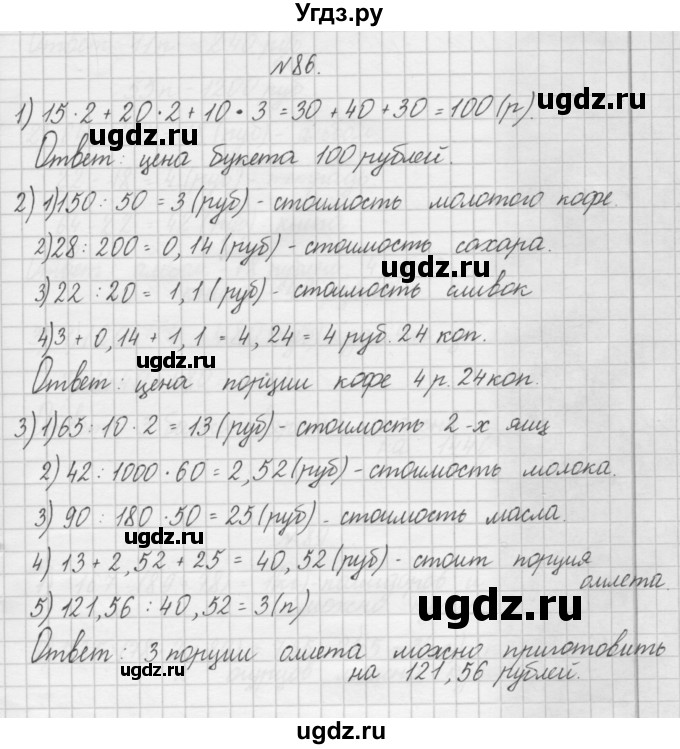 Угдз.ру
№86.
1) 15·2+20·2+10·3=30+40+30=100(р).
Ответ: цена букета 100 рублей.
2) 1)150:50=3(руб)-стоимость молотого кофе.
2)28:200=0,14(руб)-стоимость сахара.
ugdz.ru
3)22:20=1,1(руб)-стоимость сливок
4)3+0,14+1,1=4,24=4 руб.24 коп.
ugdz.ru
ugdz.ru
Ответ: цена порции кофе 4 р.24 коп.
3) 1)65:10·2=13(руб)-стоимость 2-х яиц
2)42:1000·60=2,52(руб)-стоимость молока.
ugdz.ru
3) 90:180·50=25(руб)-стоимость масла.
ugdz.ru
4) 13+2,52+25=40,52(руб)-стоит порция
омлета.
ugdz.ru
5)121,56:40,52=3(п)
Ответ: 3 порции омлета можно приготовить
на 121,56 рублей.
ugdz.ru
ugdz.ru
ugdz.ru